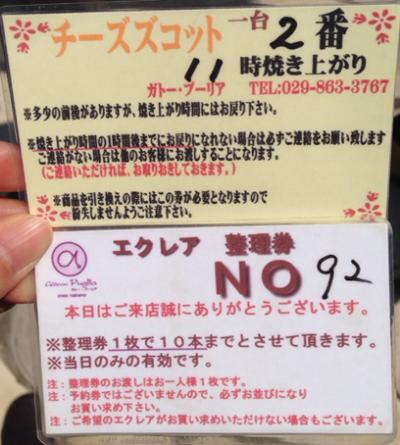 チーズズコット 一台 2 番
11 時焼き上がり
ガトー・プーリア TEL:029-863-3767
※多少の前後がありますが、焼き上がり時間にはお戻り下さい。
※焼き上がり時間の1時間後までにお戻りになれない場合は必ずご連絡をお願い致します
ご連絡がない場合は他のお客様にお渡しすることになります。
(ご連絡いただければ、お取りおきしておきます。)
※商品を引き換えの際にはこの券が必要となりますので
紛失しませんようご注意下さい。
エクレア 整理券
Gâteau Puglia
NO 92
本日はご来店誠にありがとうございます。
※整理券1枚で10本までとさせて頂きます。
※当日のみの有効です。
注：整理券のお渡しはお一人様1枚です。
注：予約券ではございませんので、必ずお並びになり
お買い求め下さい。
注：ご希望のエクレアがお買い求めいただけない場合もございます。